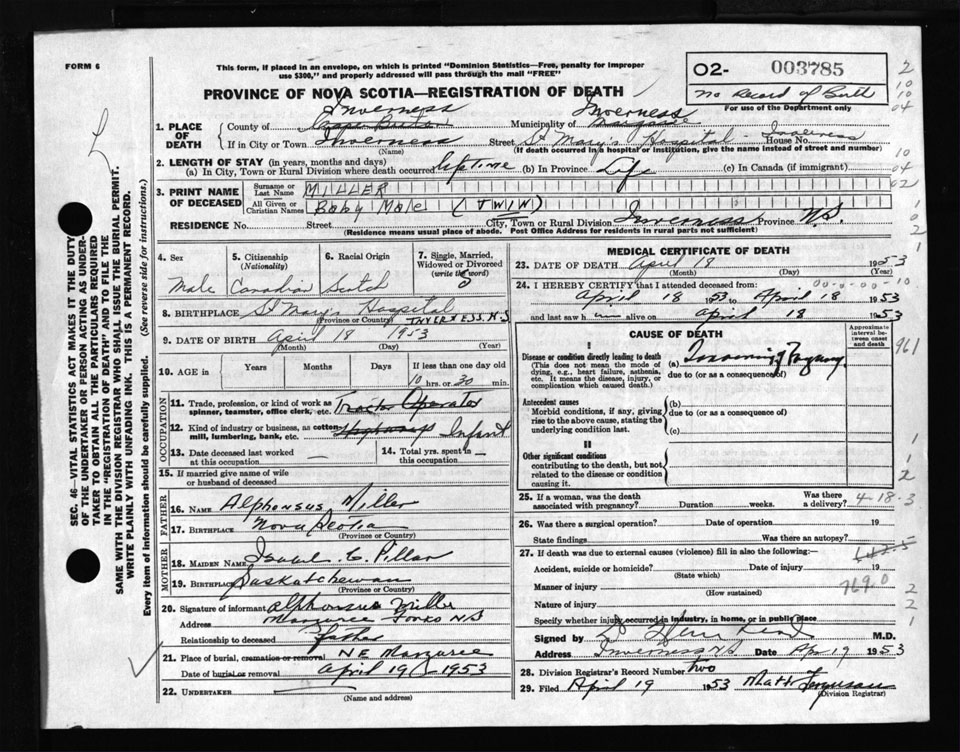 FORM 6
This form, if placed in an envelope, on which is printed "Dominion Statistics—Free, penalty for improper use $300," and properly addressed will pass through the mail "FREE"
02- 003785
No Record of Birth
For use of the Department only
PROVINCE OF NOVA SCOTIA—REGISTRATION OF DEATH
1. PLACE OF DEATH
County of Cape Breton Inverness Municipality of Inverness
If in City or Town Inverness (Name) Street St Mary's Hospital - Inverness House No.
(If death occurred in a hospital or institution, give the name instead of street and number)
2. LENGTH OF STAY (in years, months and days)
(a) In City, Town or Rural Division where death occurred lifetime (b) In Province Life (c) In Canada (if immigrant)
3. PRINT NAME OF DECEASED
Surname or Last Name MILLER
All Given or Christian Names Baby Male (TWIN)
RESIDENCE No. Street City, Town or Rural Division Inverness Province N.S.
(Residence means usual place of abode. Post Office Address for residents in rural parts not sufficient)
4. Sex Male
5. Citizenship (Nationality) Canadian
6. Racial Origin Scotch
7. Single, Married, Widowed or Divorced (write the word) S
8. BIRTHPLACE St Mary's Hospital INVERNESS N.S
(Province or Country)
9. DATE OF BIRTH April 18 1953
(Month) (Day) (Year)
10. AGE in Years Months Days If less than one day old
10 hrs. or 30 min.
OCCUPATION
11. Trade, profession, or kind of work as spinner, teamster, office clerk, etc. Tractor Operator
12. Kind of industry or business, as cotton mill, lumbering, bank, etc. Highways Infant
13. Date deceased last worked at this occupation —
14. Total yrs. spent in this occupation —
15. If married give name of wife or husband of deceased
FATHER
16. Name Alphonsus Miller
17. Birthplace Nova Scotia
(Province or Country)
MOTHER
18. Maiden Name Isabel C.
19. Birthplace Saskatchewan
(Province or Country)
20. Signature of informant Alphonsus Miller
Address Margaree Forks NS
Relationship to deceased Father
21. Place of burial, cremation or removal N E Margaree
Date of burial or removal April 19 1953
22. UNDERTAKER
(Name and address)
MEDICAL CERTIFICATE OF DEATH
23. DATE OF DEATH April 18 1953
(Month) (Day) (Year)
24. I HEREBY CERTIFY that I attended deceased from: 00-0-00-10
April 18 1953 to April 18 1953
and last saw him alive on April 18 1953
CAUSE OF DEATH
Approximate interval between onset and death
I
Disease or condition directly leading to death
(This does not mean the mode of dying, e.g., heart failure, asthenia, etc. It means the disease, injury, or complication which caused death.)
(a)
due to (or as a consequence of)
961
Antecedent causes
Morbid conditions, if any, giving rise to the above cause, stating the underlying condition last.
(b)
due to (or as a consequence of)
(c)
II
Other significant conditions
contributing to the death, but not related to the disease or condition causing it.
25. If a woman, was the death associated with pregnancy? Duration weeks. Was there a delivery? 4-18-3
26. Was there a surgical operation? Date of operation 19
State findings Was there an autopsy?
27. If death was due to external causes (violence) fill in also the following:—
Accident, suicide or homicide? (State which) Date of 19
Manner of injury (How sustained) 769.0
Nature of injury
Specify whether injury occurred in industry, in home, or in public place
Signed by M.D.
Address Inverness N.S Date Apr 19 1953
28. Division Registrar's Record Number Two
29. Filed April 19 1953 Matt Ferguson
(Division Registrar)
SEC. 46—VITAL STATISTICS ACT MAKES IT THE DUTY OF THE UNDERTAKER OR PERSON ACTING AS UNDERTAKER TO OBTAIN ALL THE PARTICULARS REQUIRED IN THE "REGISTRATION OF DEATH" AND TO FILE THE SAME WITH THE DIVISION REGISTRAR WHO SHALL ISSUE THE BURIAL PERMIT.
WRITE PLAINLY WITH UNFADING INK. THIS IS A PERMANENT RECORD.
Every item of information should be carefully supplied. (See reverse side for instructions.)